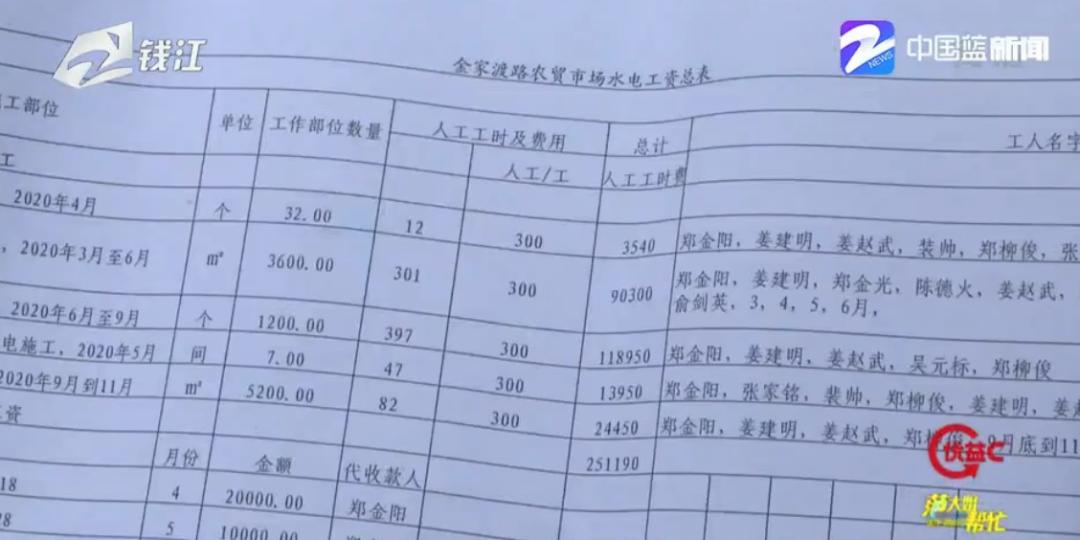 钱江
中国蓝新闻
NEWS
金家渡路农贸市场水电工资总表
工部位 单位 工作部位数量 人工工时及费用 总计 工人名字
工 人工/工 人工工时费
2020年4月 个 32.00 12 300 3540 郑金阳，姜建明，姜赵武，装帅，郑柳俊，张
，2020年3月至6月 m² 3600.00 301 300 90300 郑金阳，姜建明，郑金光，陈德火，姜赵武，
俞剑英，3，4，5，6月，
2020年6月至9月 个 1200.00 397 300 118950 郑金阳，姜建明，姜赵武，吴元标，郑柳俊
电施工，2020年5月 间 7.00 47 300 13950 郑金阳，张家铭，裴帅，郑柳俊，姜建明，姜赵
2020年9月到11月 m² 5200.00 82 300 24450 郑金阳，姜建明，姜赵武，郑柳俊，9月底到11
资 251190
月份 金额 代收款人
18 4 20000.00 郑金阳
28 5 10000.00
优益C
范大姐
帮忙